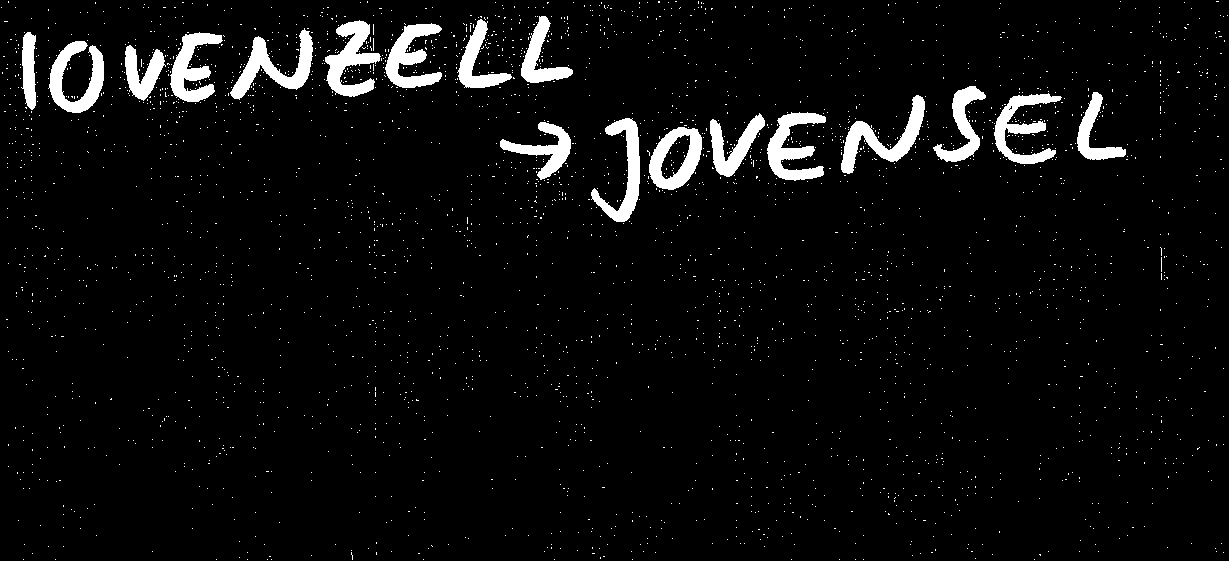 IOVENZELL
→ JOVENSEL